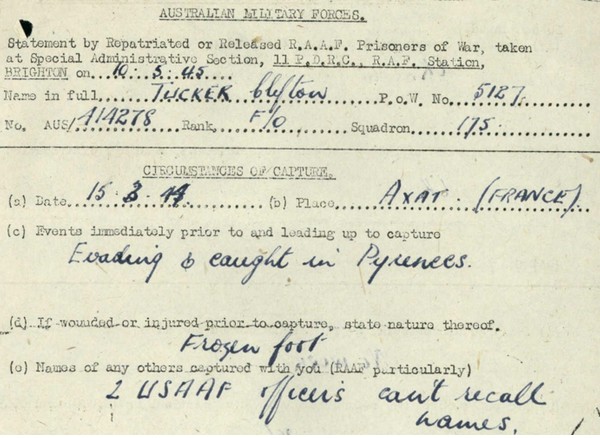 AUSTRALIAN MILITARY FORCES.
Statement by Repatriated or Released R.A.A.F. Prisoners of War, taken
at Special Administrative Section, 11 P.D.R.C., R.A.F. Station,
BRIGHTON on....10.5.45...........
Name in full....TUCKER Clifton.........P.o.W. No....5127....
No. AUS/414278......Rank....F/O........Squadron......175......
CIRCUMSTANCES OF CAPTURE.
(a) Date..15.3.44............(b) Place....AXAT. (FRANCE)
(c) Events immediately prior to and leading up to capture
Evading & caught in Pyrenees.
(d) If wounded or injured prior to capture, state nature thereof.
Frozen foot
(e) Names of any others captured with you (RAAF particularly)
2 USAAF officers can't recall
names.